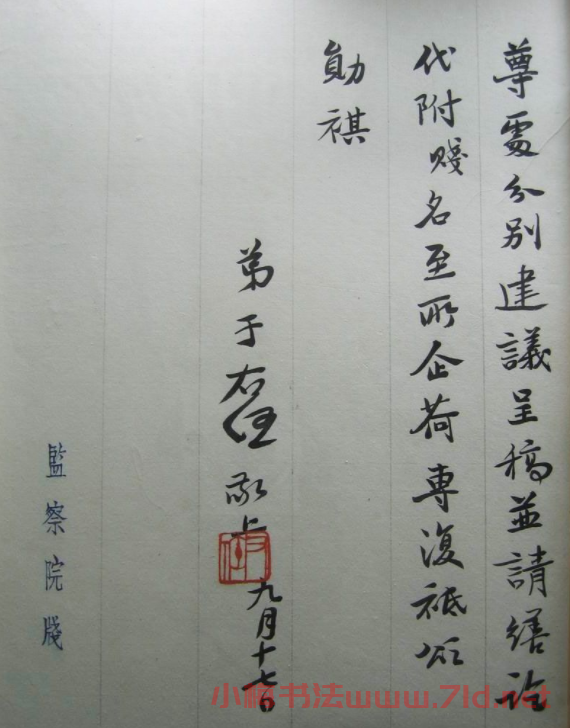 尊處分別建議呈稿並請繕證
代附賤名至所企荷專復祗頌
勛祺
弟于右任敬上
九月十七日
監察院牋
右任
小楷书法www.7ld.net